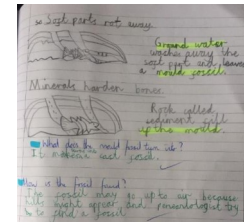 → Soft parts rot away.
Ground water
washes away the
soft part and leaves
a "mould fossil.
Minerals harden bones.
Rock called
sediment fill
up the mould.
What does the mould fossil turn into?
It makes a cast fossil.
How is the fossil found?
The fossil may go up to air because
might appear and
to find a fossil.